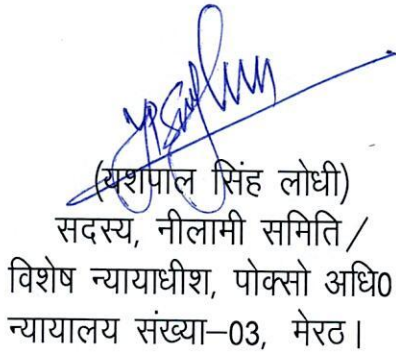 (यशपाल सिंह लोधी)
सदस्य, नीलामी समिति/
विशेष न्यायाधीश, पोक्सो अधि0
न्यायालय संख्या–03, मेरठ।